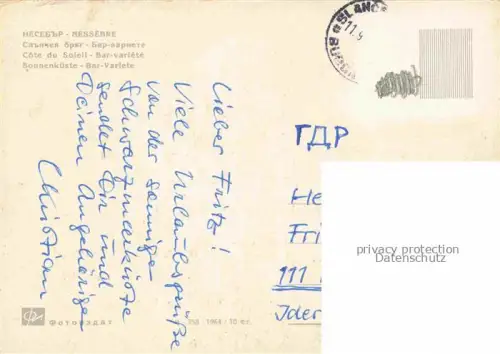 НЕСЕБЪР - NESSEBRE
Слънчев бряг - Бар-вариете
Côte du Soleil - Bar-variété
Sonnenküste - Bar-Varieté
Lieber Fritz!
Viele Urlaubsgrüße
von der sonnigen
Schwarzmeerküste
sendet Dir und
Deinen Angehörigen
Christian
Фотоиздат
1964
SLANC
11.
ГДР
He
Fri
111
Jder
privacy protection
Datenschutz